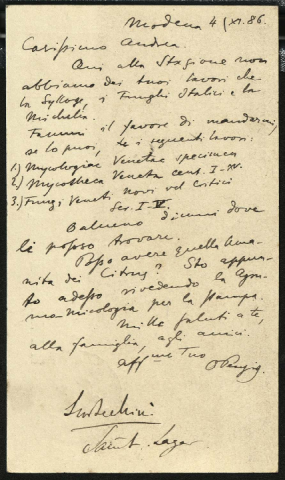 Modena 4/XI. 86.
Carissimo Andrea.
Qui alla Stazione non
abbiamo dei tuoi lavori che
la Sylloge, i Funghi Italici e la
Michelia.
Fammi il favore di mandarmi,
se lo puoi, i seguenti lavori:
1.) Mycologiae Venetae specimen
2.) Mycotheca Veneta cent. I-XV.
3.) Fungi Veneti novi vel critici
Ser. I-V.
Almeno dimmi dove
li posso trovare.
Posso avere quella
dei Citrus? Sto appun-
to adesso rivedendo la
micologia per la stampa.
Mille saluti a te,
alla famiglia, agli amici.
aff.mo Tuo
O Penzig.